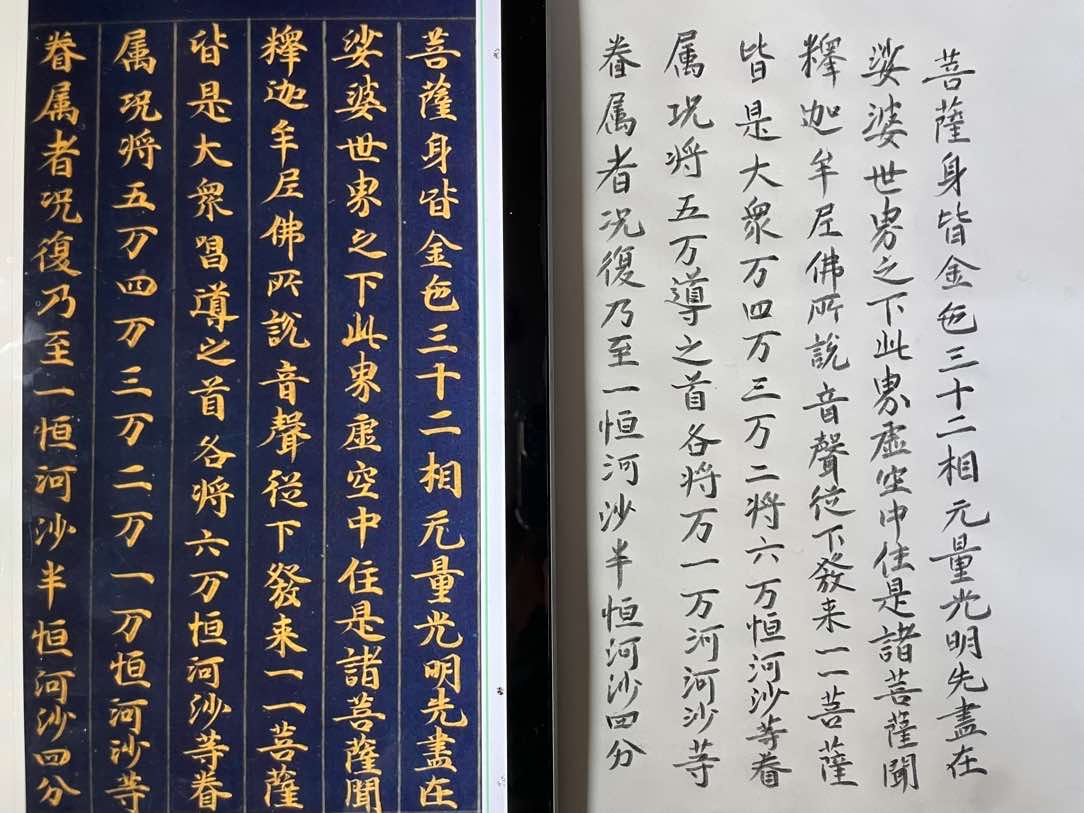 菩薩身皆金色三十二相无量光明先盡在
娑婆世界之下此界虚空中住是諸菩薩聞
釋迦牟尼佛所説音聲従下發来一一菩薩
皆是大衆唱導之首各将六万恒河沙等眷
属况将五万四万三万二万一万恒河沙等
眷属者况復乃至一恒河沙半恒河沙四分
菩薩身皆金色三十二相无量光明先盡在
娑婆世界之下此界虚空中住是諸菩薩聞
釋迦牟尼佛所説音聲従下發来一一菩薩
皆是大衆万四万三万二将六万恒河沙等眷
属况将五万導之首各将万一万河河沙等
眷属者况復乃至一恒河沙半恒河沙四分